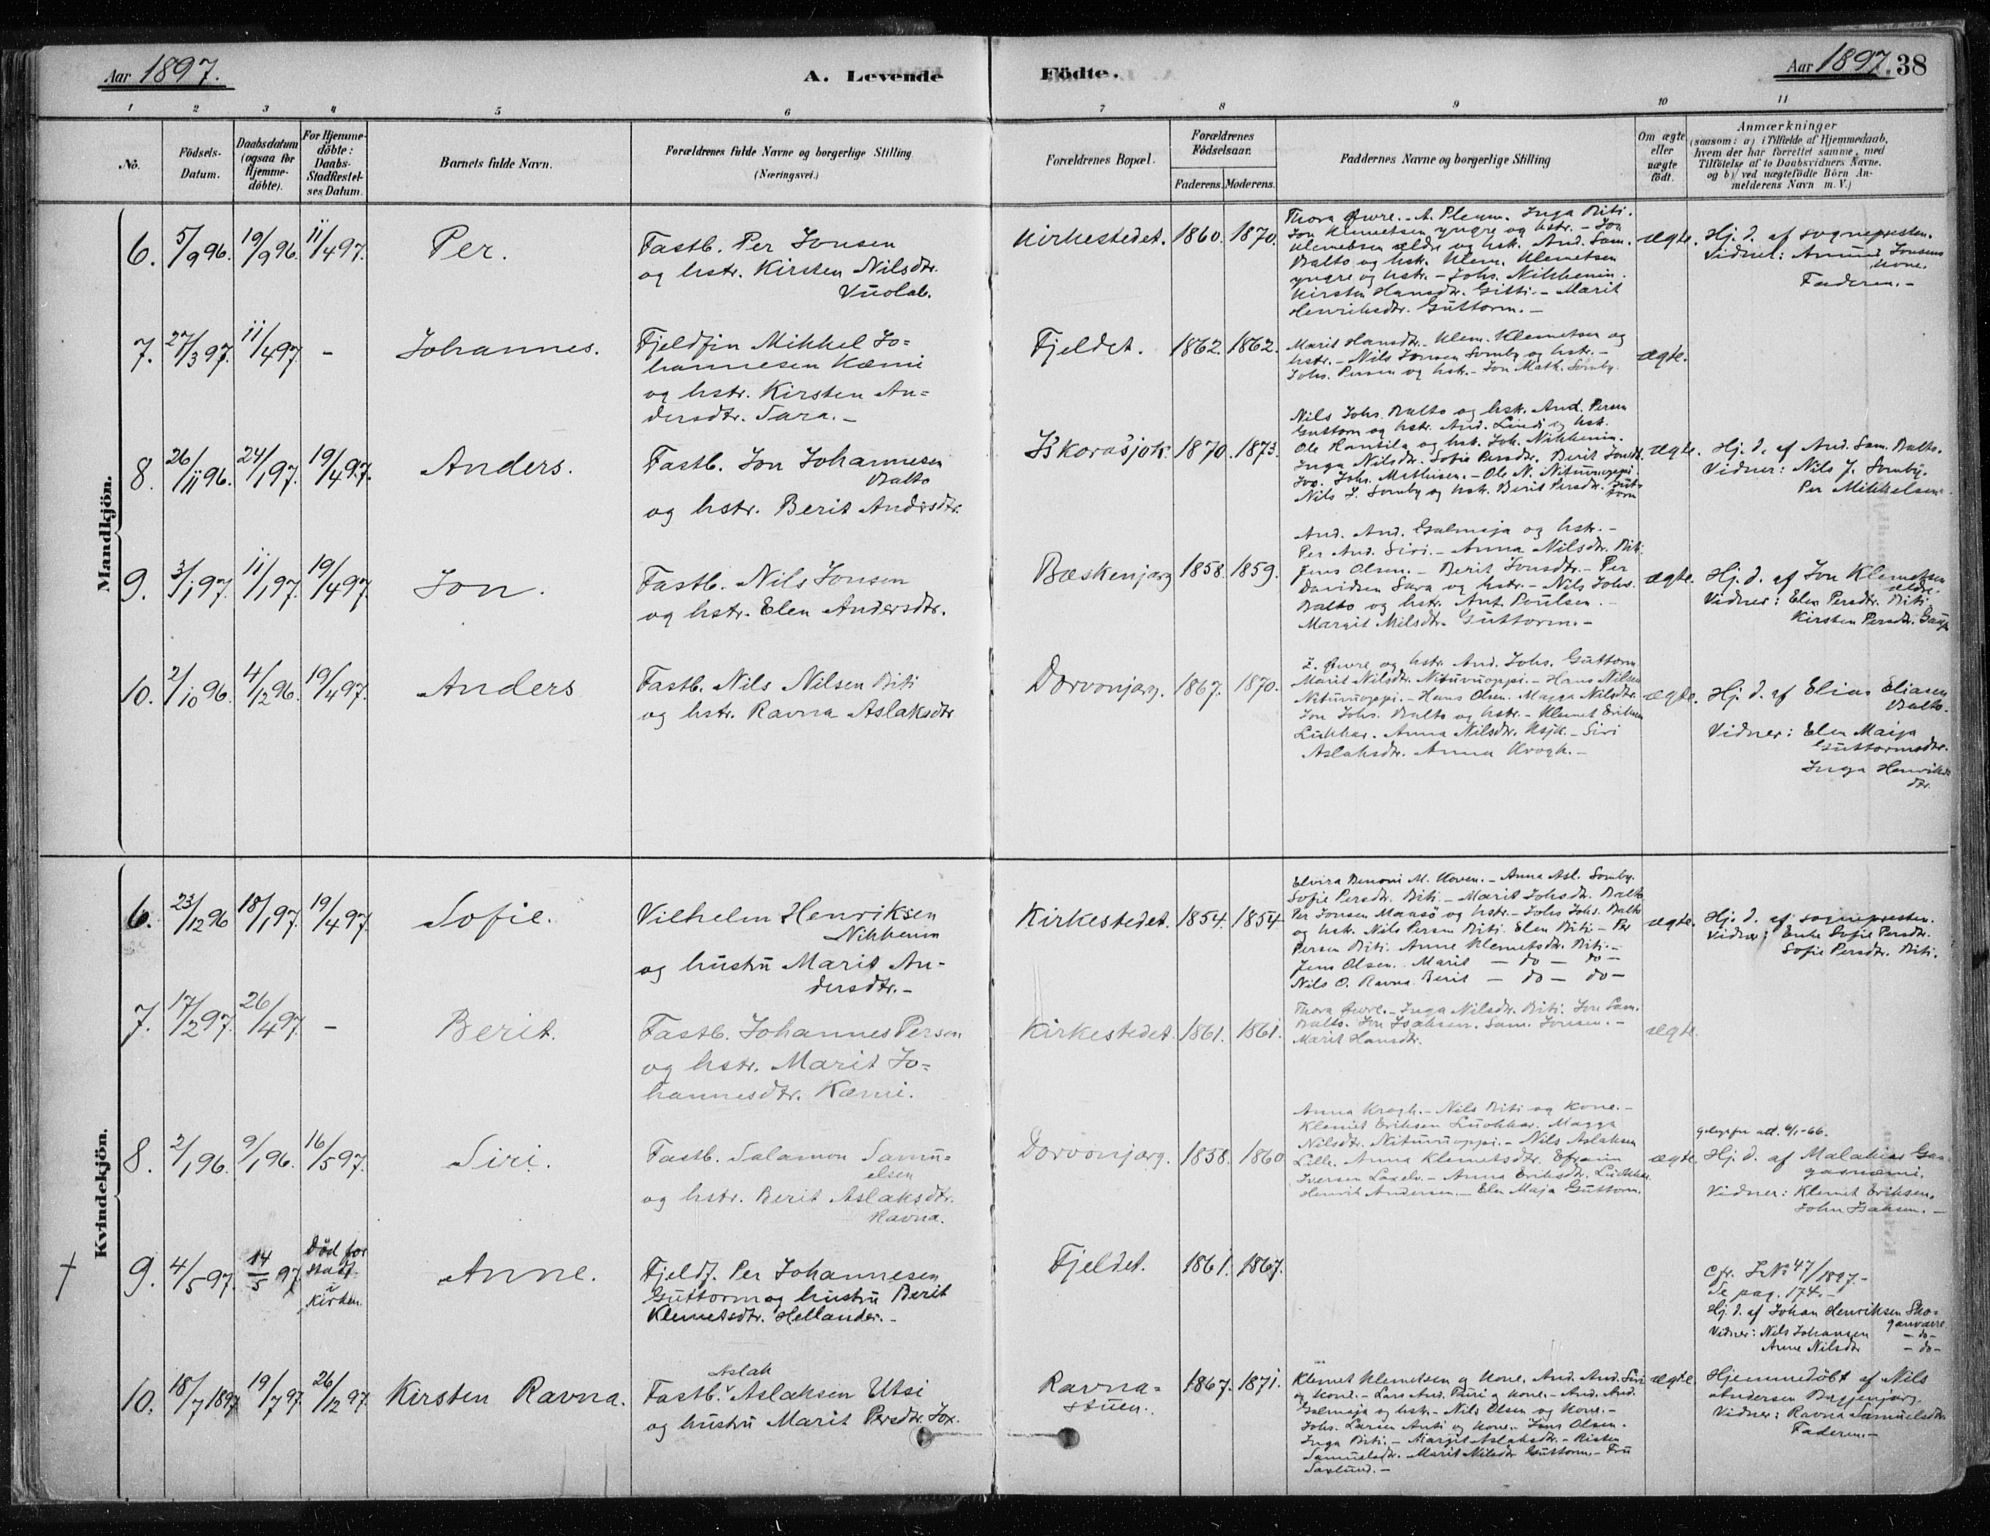 Aar 1897. A. Levende Födte. Aar 1897. 38
1 2 3 4 5 6 7 8 9 10 11
No.
Födsels-
Datum.
Daabsdatum
(ogsaa for
Hjemme-
döbte).
For Hjemme-
döbte:
Daabs-
Stadfæstel-
ses Datum.
Barnets fulde Navn.
Forældrenes fulde Navne og borgerlige Stilling
(Næringsvei.)
Forældrenes Bopæl.
Forældrenes
Födselsaar.
Faderens. Moderens.
Faddernes Navne og borgerlige Stilling
Om ægte
eller
uægte
födt.
Anmærkninger
(saasom: a) i Tilfælde af Hjemmedaab,
hvem der har forrettet samme, med
Tilföielse af to Daabsvidners Navne,
og b) ved uægtefödte Börn An-
melderens Navn m. V.)
Mandkjön.
6. 5/9 96. 19/9 96. 11/4 97. Per.
Fastb. Per Jonsen
og hstr. Kirsten Nilsdtr.
Vuolab.
Kirkestedet. 1860. 1870.
Thora Øwre. - A. Pleym. Inga Biti.
Jon Klemetsen yngre og hstr. - Jon
Klemetsen ældre og hsk. And. Sam.
Balto og hsk. Klem. Klemetsen
yngre og hstr. - Johs. Nikkenin.
Kirsten Hansdtr. Gitti. - Marit
Henriksdtr. Guttorm. -
ægte.
Hj. d. af sognepresten.
Vidner: Amund Jonsens
kone.
Faderen. -
7. 27/3 97. 11/4 97. - Johannes.
Fjeldfin Mikkel Jo-
hannesen Kæmi
og hstr. Kirsten An-
dersdtr. Sara. -
Fjeldet. 1862. 1862.
Marit Hansdtr. Klem. Klemetsen og
hstr. - Nils Jonsen Somby og hstr. -
Johs. Persen og hsk. - Jon Math. Somby.
ægte.
8. 26/11 96. 24/1 97. 19/4 97. Anders.
Fastb. Jon Johannesen
Balto
og hstr. Berit Andersdtr.
1870. 1873.
Nils Johs. Balto og hsk. And. Persen
Guttorm og hstr. And. Lindi og hsk.
Ole Rantila og hsk. Joh. Nikkenin.
Inga Nilsdtr. Sofie Persdtr. Berit Jonsdtr.
Jox. Johs. Mathisen. - Ole N. Nituvuoppi.
Nils J. Somby og hsk. Berit Persdtr. Gut-
torm
ægte.
Hj. d. af And. Sam. Balto.
Vidner: Nils J. Somby.
Per Mikkelsen.
9. 3/1 97. 11/1 97. 19/4 97. Jon.
Fastb. Nils Jonsen
og hstr. Elen Andersdtr.
Bæskenjarg 1858. 1859.
And. And. Galmeja og hstr. -
Per And. Siri. - Anna Nilsdtr. Biti.
Jens Olsen. - Berit Jonsdtr. - Per
Davidsen Sara og hstr. - Nils Johs.
Balto og hstr. Ant. Poulsen. -
Margit Nilsdtr. Guttorm. -
ægte.
Hj. d. af Jon Klemetsen
ældre.
Vidner: Elen Persdtr. Biti,
Kirsten Persdtr. Gaup
10. 2/10 96. 4/12 96. 19/4 97. Anders
Fastb. Nils Nilsen Biti
og hstr. Ravna Aslaksdtr
Dorvonjarg. 1867. 1870.
Øwre og hstr. And. Johs. Guttorm
Marit Nilsdtr. Nituvuoppi. - Hans Nilsen
Nituvuoppi. - Hans Olsen. Magga Nilsdtr.
Jon Johs. Balto og hstr. - Klemet Eriksen
Lukkar. Anna Nilsdtr. - Siri
Aslaksdtr. Anna Krogh. -
ægte.
Hj. d. af Elias Eliasen
Balto.
Vidner: Elen Maija
Guttormsdtr.
Inga Henriks
dtr.
Kvindekjön.
6. 23/12 96 18/1 97. 19/4 97. Sofie.
Vilhelm Henriksen
Nikkenin
og hustru Marit An-
dersdtr. -
Kirkestedet. 1854. 1854
Elvira Benoni M. Koven. - Anna Asl. Somby.
Sofie Persdtr. Biti. - Marit Johsdtr. Balto
Per Jonsen Mansö og hstr. - Johs Johs. Balto
og hsk. Nils Persen Biti. Elen Biti. - Per
Persen Biti. Anne Klemetsdtr. Biti. -
Jens Olsen. Marit - do - do -
Nils O. Ravna Berit - do - do -
ægte.
Hj. d. af sognepresten.
Vidner: Enke Sofie Persdtr.
Sofie Persdtr. Biti.
7. 17/2 97. 26/4 97. - Berit.
Fastb. Johannes Person
og hstr. Marit Jo-
hannesdtr. Kæmi.
Kirkestedet. 1861. 1861.
Thora Øwre. - Inga Nilsdtr. Biti. Jon Sam.
Balto. Jon Isaksen. Sam. Jonsen. -
Marit Hansdtr.
ægte.
8. 2/1 96. 9/1 96. 16/5 97. Siri.
Fastb. Salamon Samu-
elsen
og hstr. Berit Aslaksdtr.
Ravna.
Dorvonjarg. 1858. 1860
Anna Krogh. - Nils Biti og Kone. -
Klemet Eriksen Luokkar. Magga
Nilsdtr. Nituvuoppi. - Nils Aslaksen
Lille. Anna Klemetsdtr. Efraim
Iversen Laxelv. - Anna Eriksdtr. Lukkar
Henrik Andersen. - Elen Maja Guttorm.
ægte.
Hj. d. af Malakias
Vidner: Klemet Eriksen.
John Isaksen. -
† 9. 4/5 97. 14/5 97
Död for
Stadf.
i
Kirken.
Anne.
Fjeldf. Per Johannesen
Guttorm og hustru Berit
Klemetsdtr. Hellander. -
Fjeldet. 1861. 1867.
Cfr. J.No 47/1897. -
Se pag. 174. -
Hj. d. af Johan Henriksen Sko-
ganvarre
Vidner: Nils Johansen - do -
Anne Nilsdtr - do -
10. 18/7 1897 19/7 97. 26/12 97. Kirsten Ravna.
Aslak
Fastb. Aslaksen Utsi
og hustru Marit Persdtr. Jox.
Ravna-
stuen. 1867. 1871.
Klemet Klemetsen og Kone. And. And. Siri
og kone. - Lars And. Turi og kone. - And. And.
Galmeja og hstr. - Nils Olsen og Kone. -
Johs. Larsen Anti og Kone. Jens Olsen.
Inga Biti. - Margit Aslaksdtr. - Risten
Samuelsdtr. Marit Nilsdtr Guttorm. - Fru
Saxlund. -
ægte.
Hjemmedöbt af Nils
Andersen
Vidner: Ravna Samuelsdtr
Faderen. -